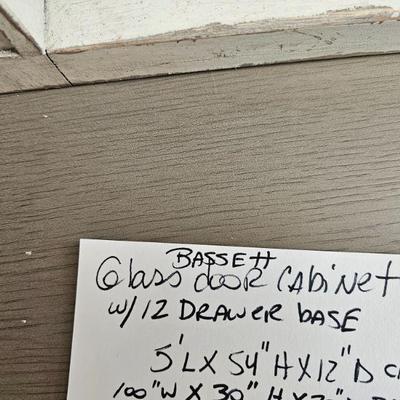 BASSETT
Glass door CABiNet
w/ 12 DRAWER BASE
5'L X 54"H X 12"D
100"W X 30"H X